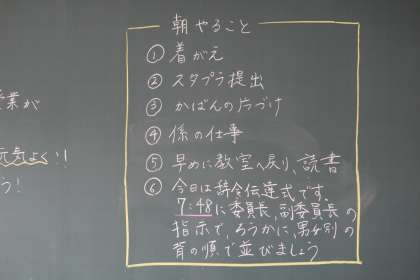 朝やること
① 着がえ
② スタプラ提出
③ かばんの片づけ
④ 係の仕事
⑤ 早めに教室へ戻り、読書
⑥ 今日は辞令伝達式です。
7:48に委員長,副委員長の
指示で,ろうかに,男女別の
背の順で並びましょう
業が
元気よく!!
う!